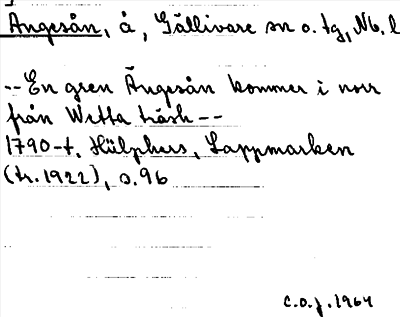 Ängesån, å, Gällivare sn o. tg, Nb. l
--En gren Ängesån kommer i norr
från Wetta träsk--
1790-t. Hülphers, Lappmarken
(tr. 1922), s. 96
C.O.J. 1964